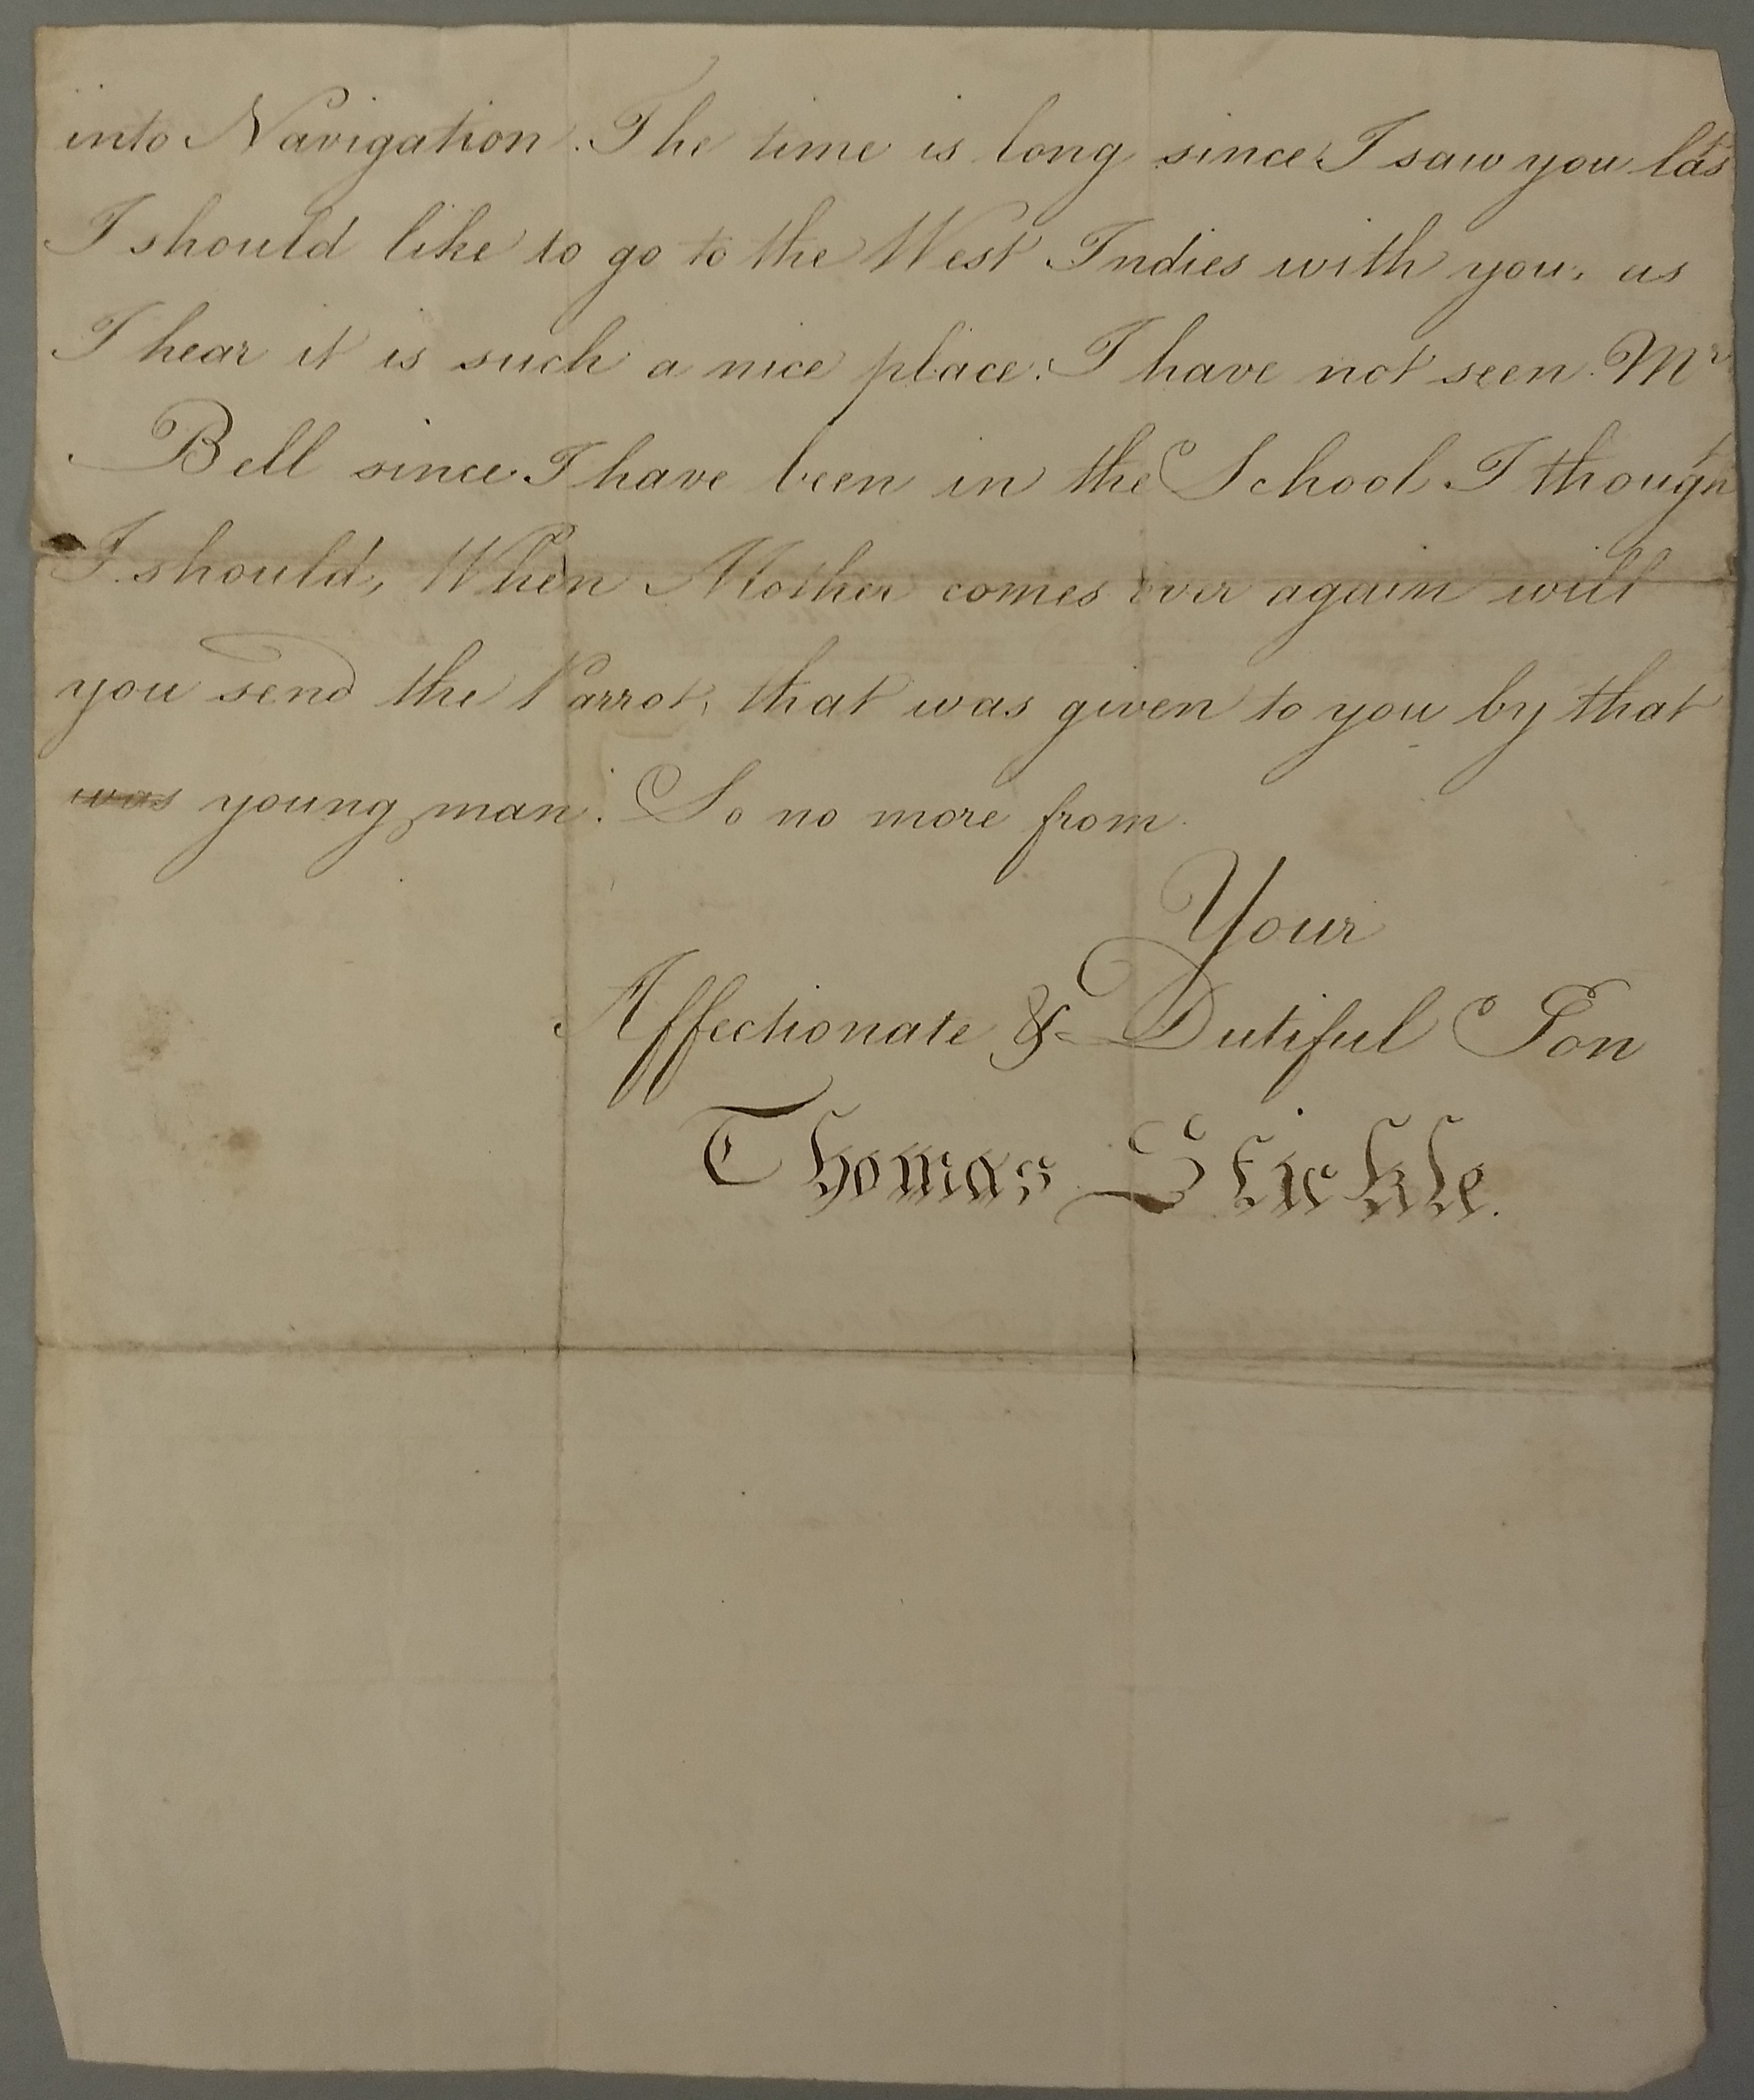 into Navigation. The time is long since I saw you last
I should like to go to the West Indies with you, as
I hear it is such a nice place. I have not seen Mr
Bell since I have been in the School I thought
I should, When Mother comes over again will
you send the Parrot, that was given to you by that
was young man. So no more from
Your
Affectionate & Dutiful Son
Thomas Stickle.